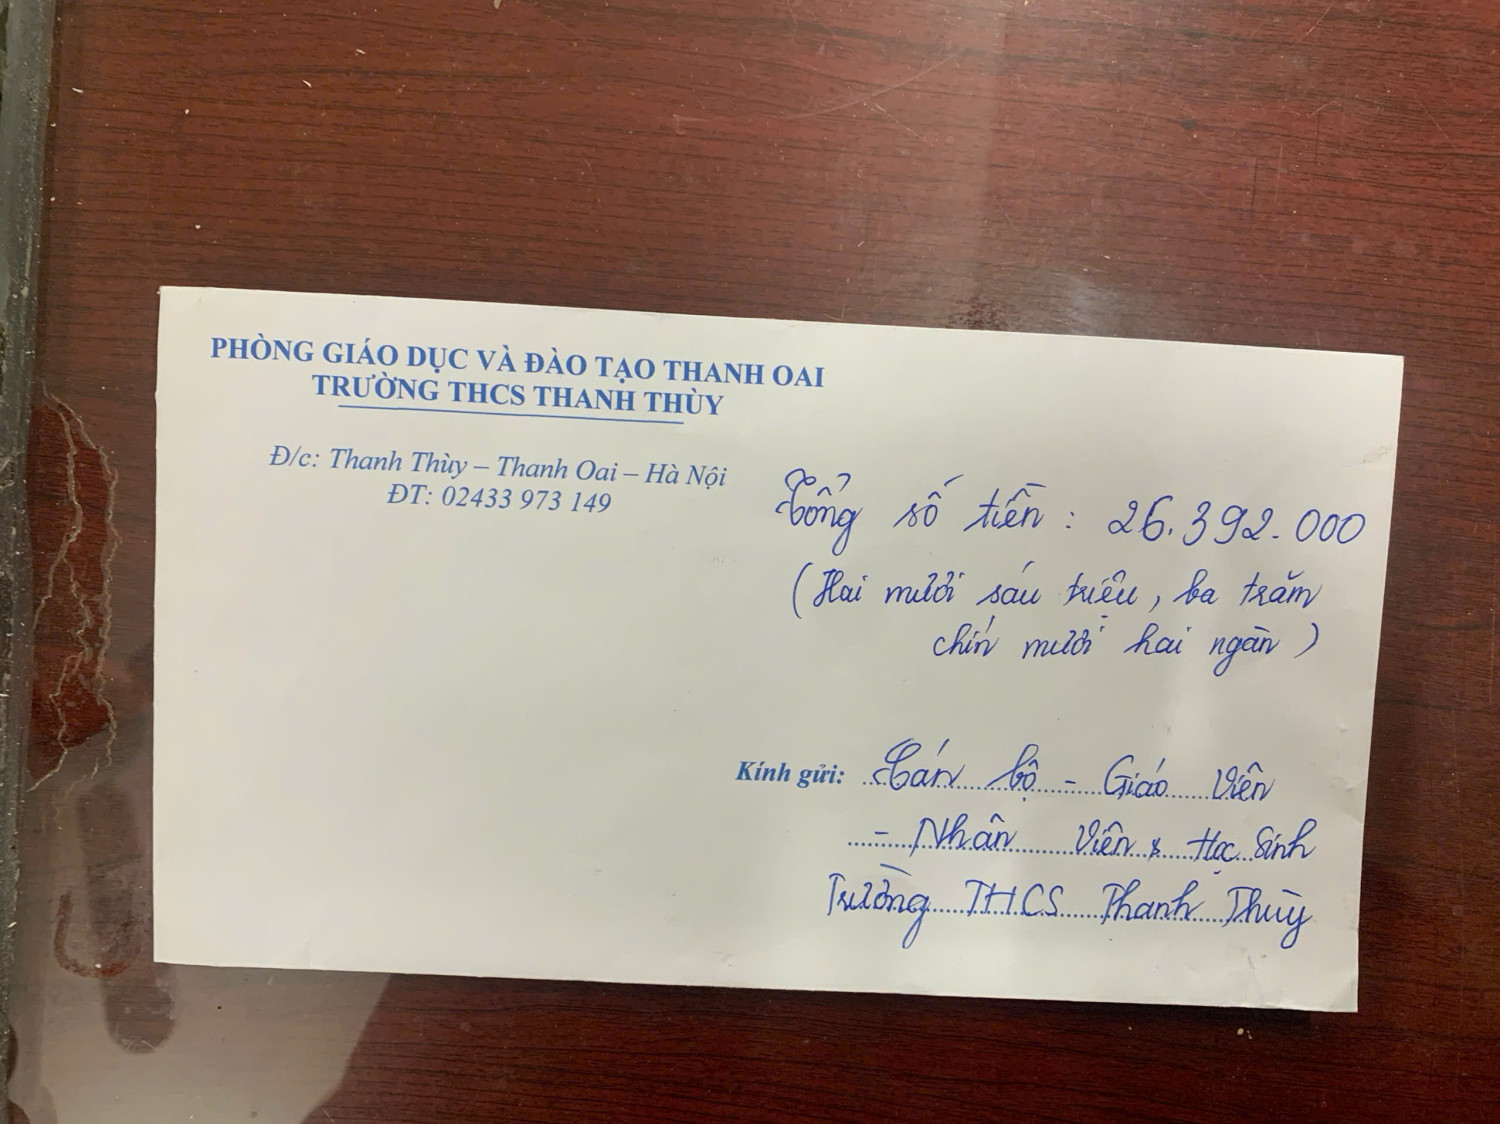 PHÒNG GIÁO DỤC VÀ ĐÀO TẠO THANH OAI
TRƯỜNG THCS THANH THÙY
Đ/c: Thanh Thùy – Thanh Oai – Hà Nội
ĐT: 02433 973 149
Tổng số tiền : 26.392.000
(Hai mươi sáu triệu, ba trăm
chín mươi hai ngàn)
Kính gửi: Cán bộ - Giáo Viên
- Nhân Viên & Học Sinh
Trường THCS Thanh Thùy